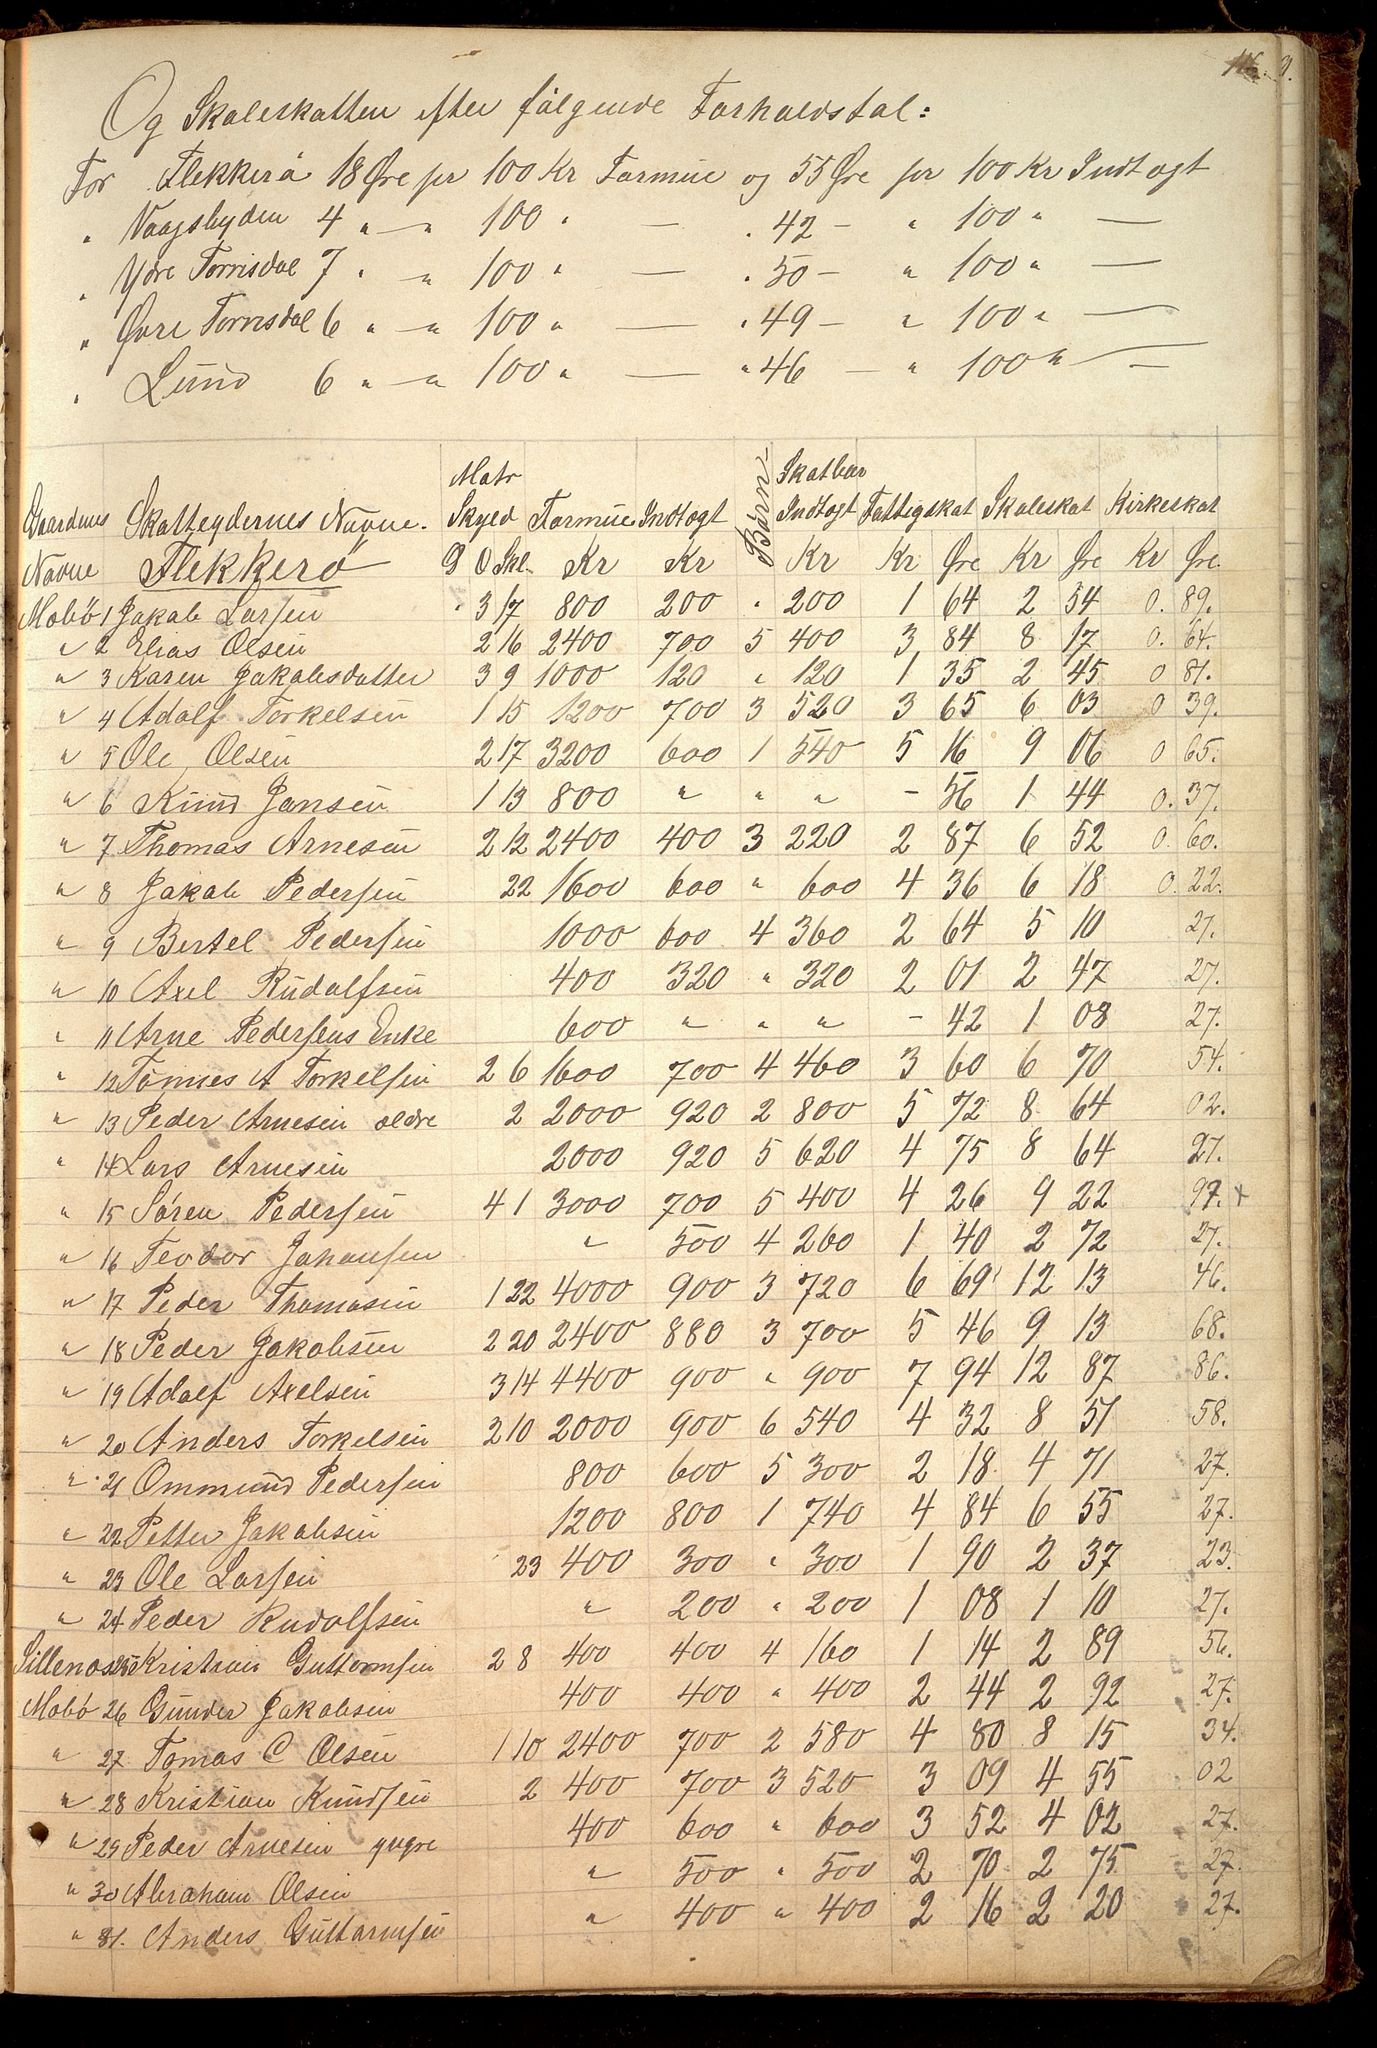 Og Skoleskatten efter følgende Forholdstal:
For Flekkerø 18 Øre pr 100 Kr Formue og 55 Øre pr 100 Kr Indtægt
" Vaagsbyden 4 " — " 100 " — " 42 — " 100 " —
" Ydre Torrisdal 7 " — " 100 " — " 50 — " 100 " —
" Øvre Torrisdal 6 " — " 100 " — " 49 — " 100 " —
" Lund 6 " — " 100 " — " 46 — " 100 " —
Gaardenes Navne Skatteydernes Navne. Matr Skyld Formue Indtægt Børn Skatbar Indtægt Fattigskat Skoleskat Kirkeskat
Flekkerø D O Skl. Kr Kr Kr Kr Øre Kr Øre Kr Øre
Mobø 1 Jakob Larsen " 3 17 800 200 " 200 1 64 2 54 0. 89.
" 2 Elias Olsen 2 16 2400 700 5 400 3 84 8 17 0. 64.
" 3 Karen Jakobsdatter 3 9 1000 120 " 120 1 35 2 45 0 81.
" 4 Adolf Torkelsen 1 15 1200 700 3 520 3 65 6 03 0 39.
" 5 Ole Olsen 2 17 3200 600 1 540 5 16 9 06 0 65.
" 6 Knud Jansen 1 13 800 " " " - 56 1 44 0. 37.
" 7 Thomas Arnesen 2 12 2400 400 3 220 2 87 6 52 0. 60.
" 8 Jakob Pedersen 22 1600 600 " 600 4 36 6 18 0. 22.
" 9 Bertel Pedersen 1000 600 4 360 2 64 5 10 27.
" 10 Axel Rudolfsen 400 320 " 320 2 01 2 47 27.
" 11 Arne Pedersens Enke 600 " " " - 42 1 08 27.
" 12 Tønnes A Torkelsen 2 6 1600 700 4 460 3 60 6 70 54.
" 13 Peder Arnesen ældre 2 2000 920 2 800 5 72 8 64 02.
" 14 Lars Arnesen 2000 920 5 620 4 75 8 64 27.
" 15 Søren Pedersen 4 1 3000 700 5 400 4 26 9 22 97. +
" 16 Teodor Johansen " 500 4 260 1 40 2 72 27.
" 17 Peder Thomasen 1 22 4000 900 3 720 6 69 12 13 46.
" 18 Peder Jakobsen 2 20 2400 880 3 700 5 46 9 13 68.
" 19 Adolf Axelsen 3 14 4400 900 " 900 7 94 12 87 86.
" 20 Anders Torkelsen 2 10 2000 900 6 540 4 32 8 51 58.
" 21 Ommund Pedersen 800 600 5 300 2 18 4 71 27.
" 22 Petter Jakobsen 1200 800 1 740 4 84 6 55 27.
" 23 Ole Larsen 23 400 300 " 300 1 90 2 37 23.
" 24 Peder Rudolfsen " 200 " 200 1 08 1 10 27.
Sillenos 25 Kristian Guttormsen 2 8 400 400 4 160 1 14 2 89 56.
Mobø 26 Gunder Jakobsen 400 400 " 400 2 44 2 92 27.
" 27 Tomas C Olsen 1 10 2400 700 2 580 4 80 8 15 34.
" 28 Kristian Knudsen 2 400 700 3 520 3 09 4 55 02
" 29 Peder Arnesen yngre 400 600 " 600 3 52 4 02 27.
" 30 Abraham Olsen " 500 " 500 2 70 2 75 27.
" 31. Anders Guttormsen " 400 " 400 2 16 2 20 27.